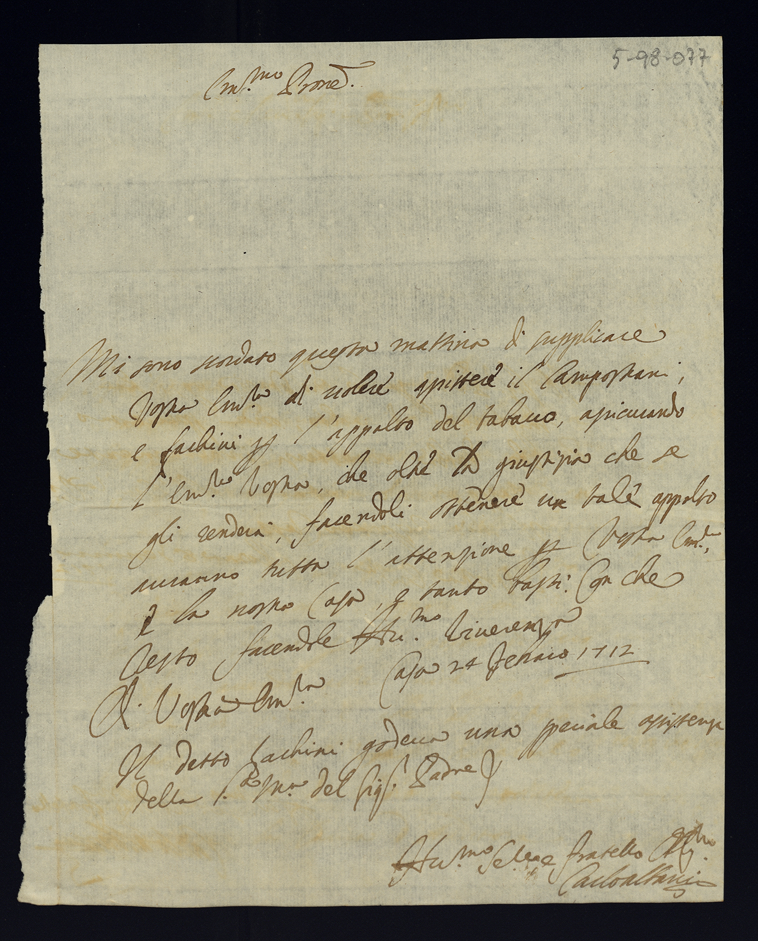 5-98-077
Em.mo Prone.
Mi sono scordato questa mattina di supplicare
Vostra Em.za di volere assistere il Campostani,
e Fachini per l'appalto del tabacco, assicurando
l'Em.za Vostra, che oltre la giustizia che se
gli renderà, facendoli ottenere un tale appalto
avranno tutta l'attenzione per Vostra Em.za,
e la nostra Casa, e tanto basti. Con che
resto facendole Hu.mo riverenza
Di Vostra Em.za Casa 24 1712
Il detto Fachini godeva una speciale assistenza
della del Sig.r Padre
Hu.mo Se.re e fratello
Carlo Albani